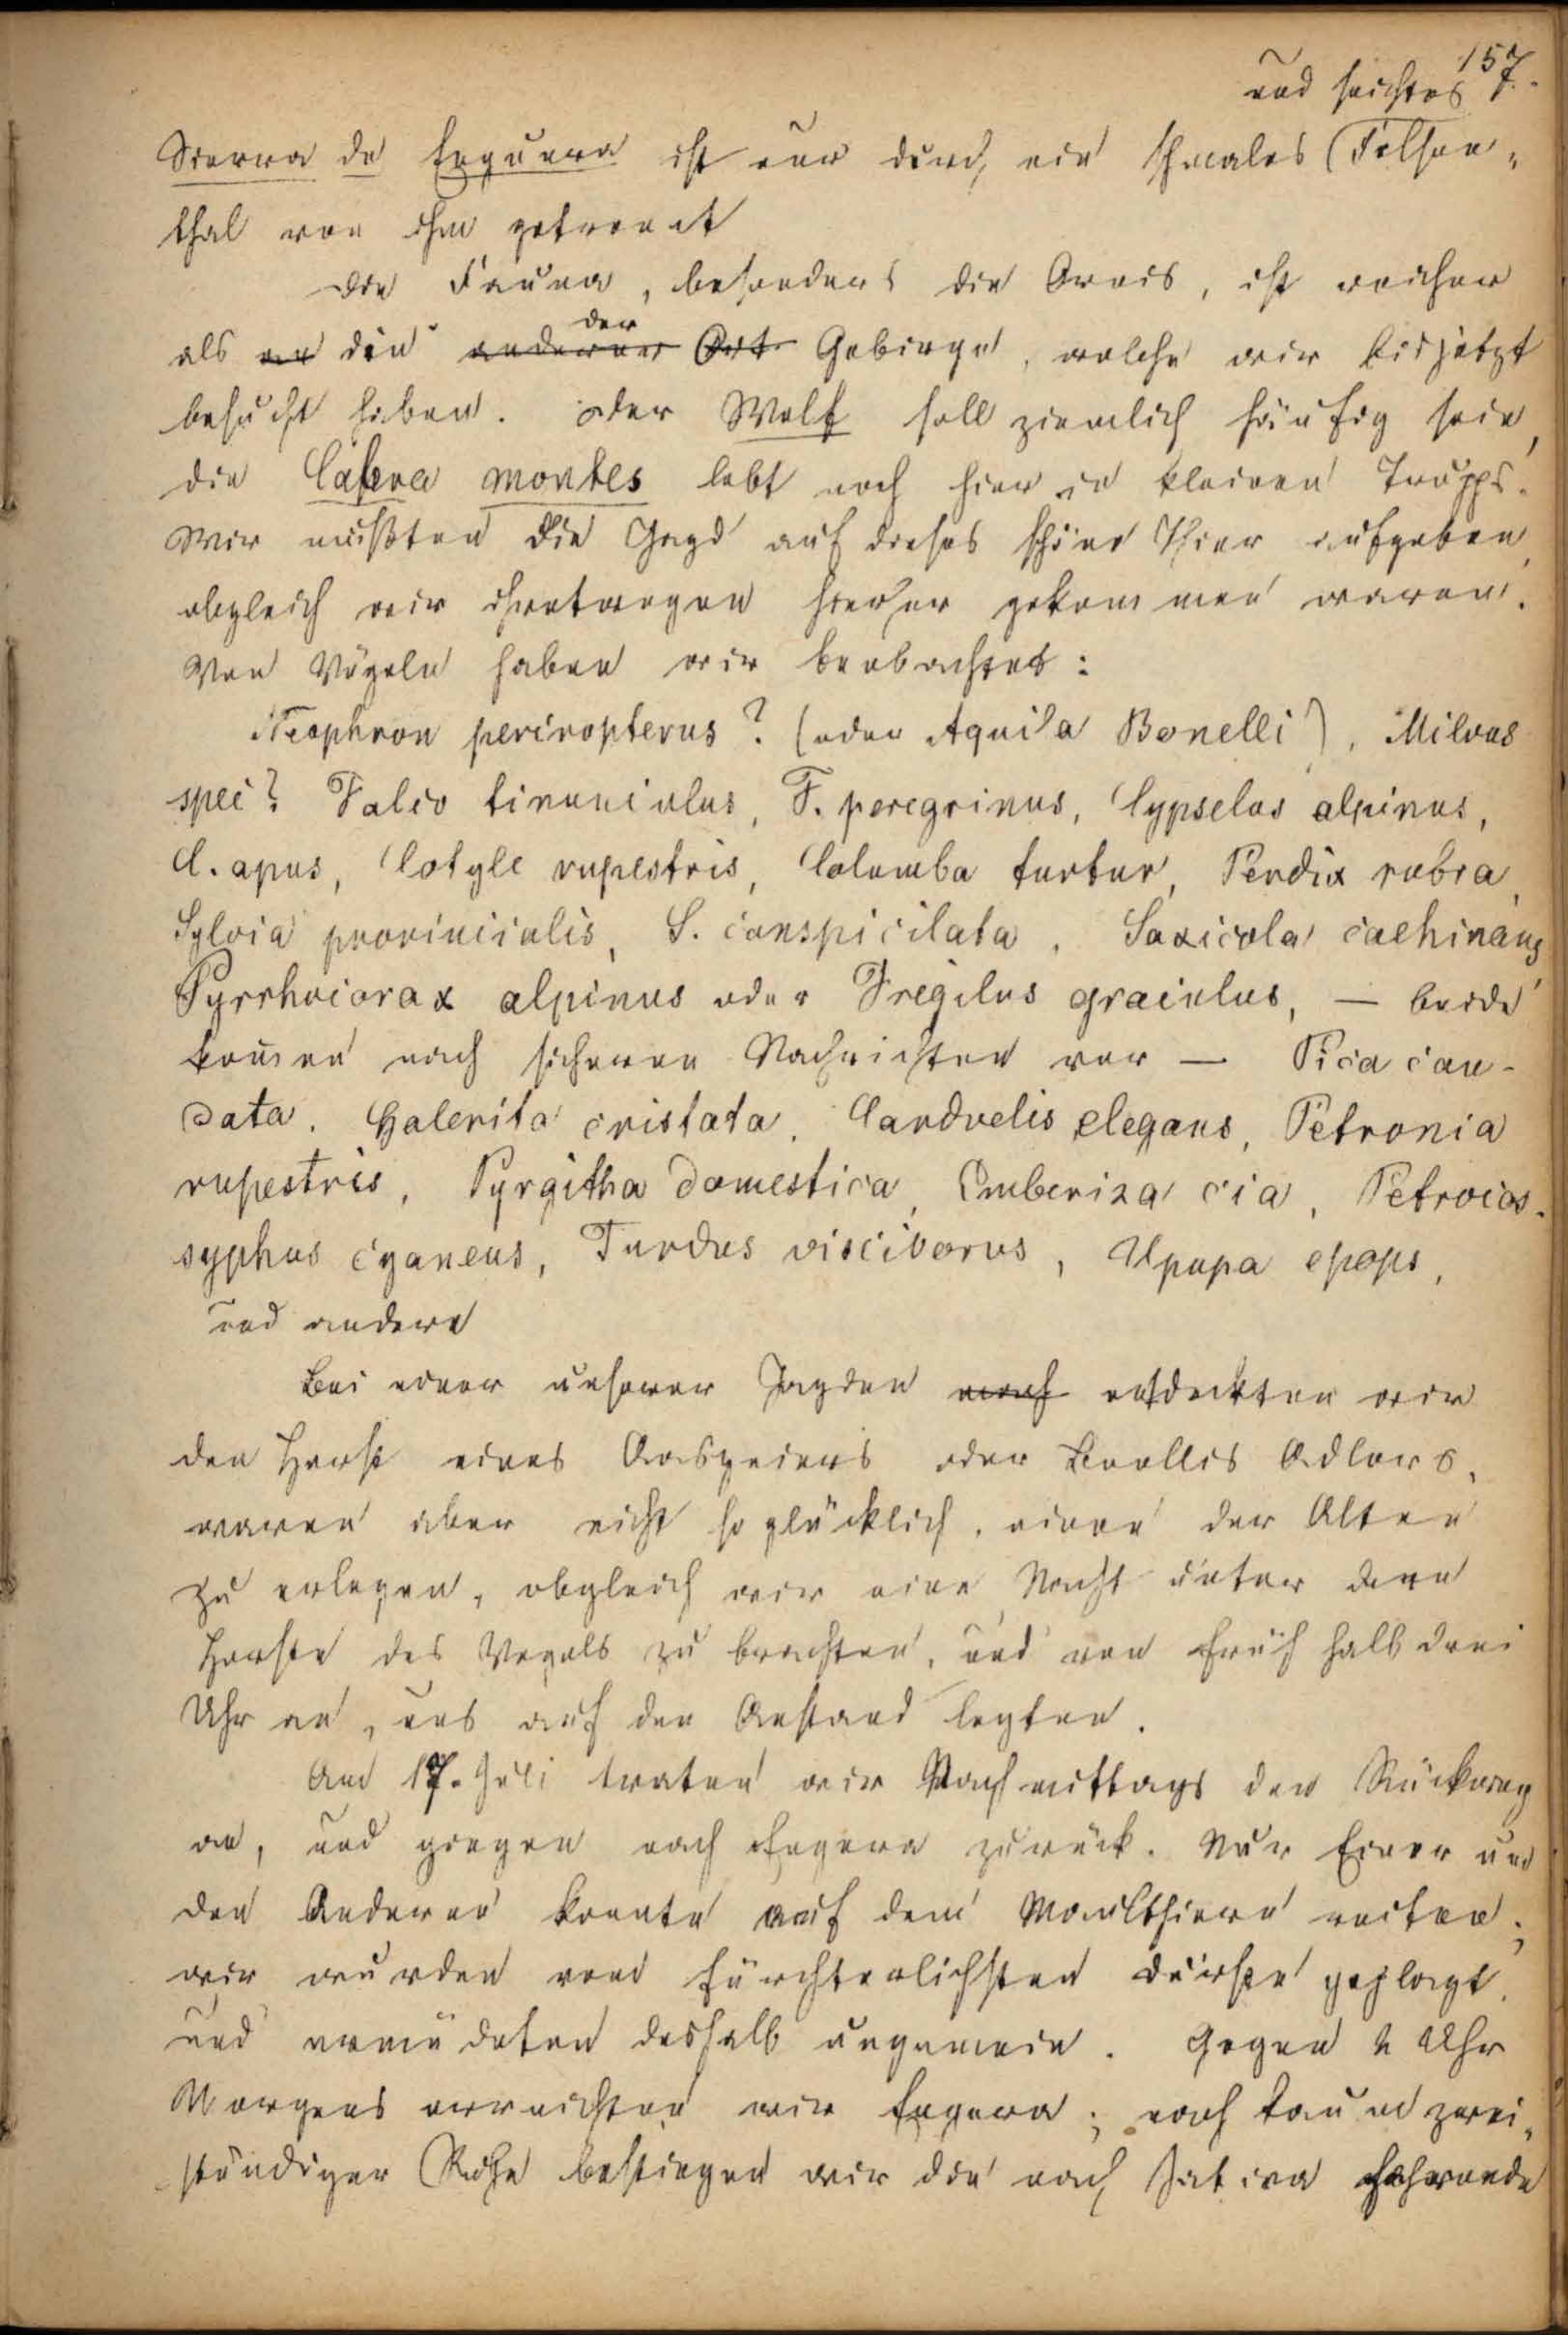 157.
und seichtes
Sierra de Enguera ist nur durch ein schmales Felsen-
thal von ihm getrennt
Die Fauna, besonders die Avais, ist reicher
als an die anderer der Ort Gebirge, welche wir bisjetzt
besucht haben. Der Wolf soll ziemlich häufig sein,
die Cabra montes lebt noch hier in kleinen Trupps.
Wir mußten die Jagd auf dieses schöne Thier aufgeben,
obgleich wir ihretwegen hierher gekommen waren.
Von Vögeln haben wir beobachtet:
Neophron percnopterus? (oder Aquila Bonelli), Milvus
spec? Falco tinunculus, F. peregrinus, Cypselus alpinus,
C. apus, Cotyle rupestris, Columba turtur, Perdix rubra,
Sylvia provincialis, S. conspicilata, Saxicola cachinans
Pyrrhocorax alpinus oder Fregilus graculus, — beide
kom̅en nach sicheren Nachrichten vor — Pica cau-
data. Galerita cristata. Carduelis elegans, Petronia
rupestris, Pyrgitha domestica, Emberiza cia, Petrocos-
syphus cyaneus, Turdus viscivorus, Upupa epops,
und andere
Bei einer unserer Jagden entdeckten wir
den Horst eines Aasgeiers oder Bonellis Adlers,
waren aber nicht so glücklich, einen der Alten
zu erlegen, obgleich wir eine Nacht unter dem
Horste des Vogels zu brachten, und von früh halb drei
Uhr an, uns auf den Anstand legten.
Am 17. Juli traten wir Nachmittags den Rückweg
an, und gingen nach Engera zurück. Nur Einer um
den Anderen konnte auf dem Maulthiere reiten;
wir wurden vom fürchterlichsten Durste geplagt,
und ermüdeten deshalb ungemein. Gegen 2 Uhr
Morgens erreichten wir Engera; nach kaum zwei-
stündiger Ruhe bestiegen wir die nach Jativa fahrende